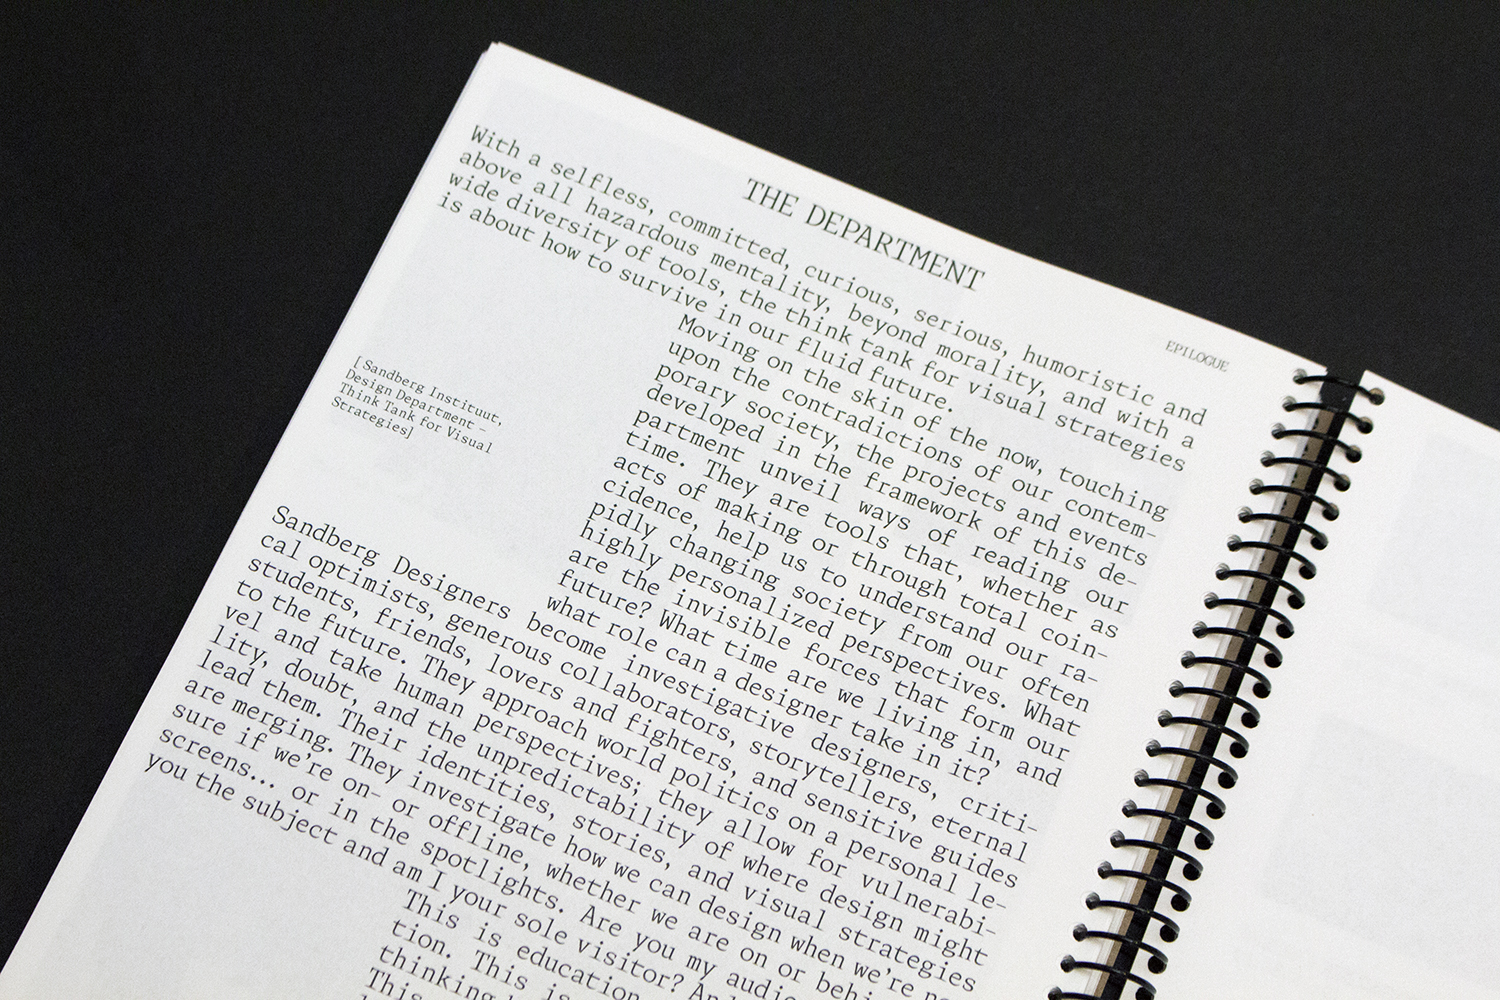 THE DEPARTMENT
EPILOGUE
With a selfless, committed, curious, serious, humoristic and
above all hazardous mentality, beyond morality, and with a
wide diversity of tools, the think tank for visual strategies
is about how to survive in our fluid future.
Moving on the skin of the now, touching
upon the contradictions of our contem-
porary society, the projects and events
developed in the framework of this de-
partment unveil ways of reading our
time. They are tools that, whether as
acts of making or through total coin-
cidence, help us to understand our ra-
pidly changing society from our often
highly personalized perspectives. What
are the invisible forces that form our
future? What time are we living in, and
what role can a designer take in it?
[Sandberg Instituut,
Design Department –
Think Tank for Visual
Strategies]
Sandberg Designers become investigative designers, criti-
cal optimists, generous collaborators, storytellers, eternal
students, friends, lovers and fighters, and sensitive guides
to the future. They approach world politics on a personal le-
vel and take human perspectives; they allow for vulnerabi-
lity, doubt, and the unpredictability of where design might
lead them. Their identities, stories, and visual strategies
are merging. They investigate how we can design when we're
sure if we're on- or offline, whether we are on or
screens... or in the spotlights. Are you my
you the subject and am I your sole visitor?
This is education
tion. This is
thinking
This